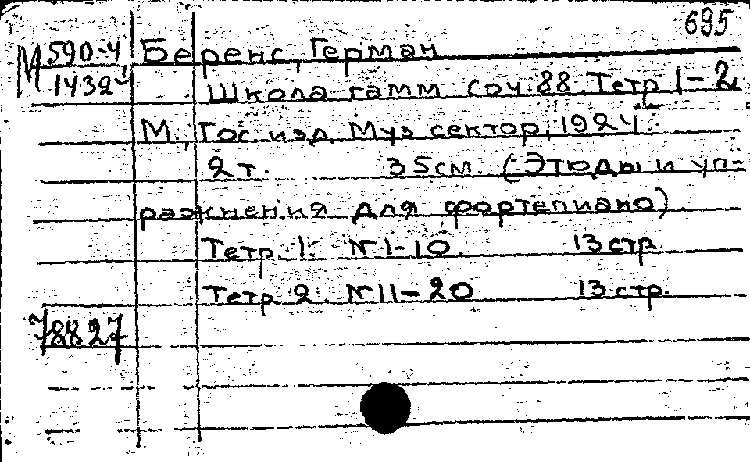 695
М 590-4 Беренс, Герман
1432ч Школа гамм соч. 88 Тетр 1-2
М., Гос. изд. Муз сектор, 1924.
2 т. 35см (Этюды и уп-
ражнения для фортепиано)
Тетр. 1. №1-10. 13 стр
Тетр 2. №11-20 13 стр.
78827